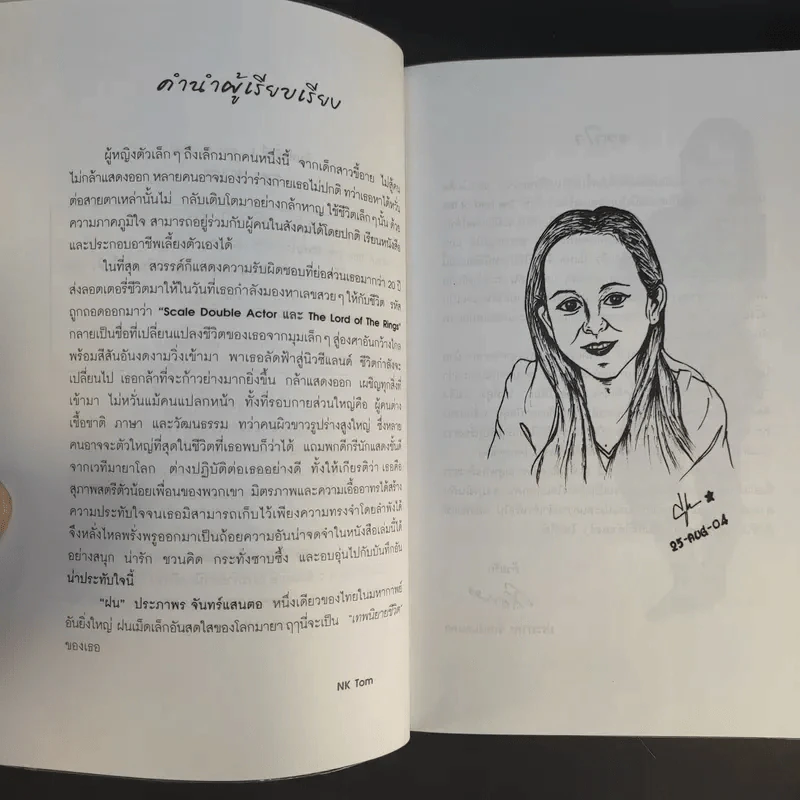 คำนำผู้เรียบเรียง
ผู้หญิงตัวเล็กๆ ถึงเล็กมากคนหนึ่งนี้ จากเด็กสาวขี้อาย ไม่สู้คน
ไม่กล้าแสดงออก หลายคนอาจมองว่าร่างกายเธอไม่ปกติ ทว่าเธอหาได้หวั่น
ต่อสายตาเหล่านั้นไม่ กลับเติบโตมาอย่างกล้าหาญ ใช้ชีวิตเล็กๆนั้น ด้วย
ความภาคภูมิใจ สามารถอยู่ร่วมกับผู้คนในสังคมได้โดยปกติ เรียนหนังสือ
และประกอบอาชีพเลี้ยงตัวเองได้
ในที่สุด สวรรค์ก็แสดงความรับผิดชอบที่ย่อส่วนเธอมากว่า 20 ปี
ส่งลอตเตอรี่ชีวิตมาให้ในวันที่เธอกำลังมองหาเลขสวยๆ ให้กับชีวิต รหัส
ถูกถอดออกมาว่า "Scale Double Actor และ The Lord of The Rings"
กลายเป็นชื่อที่เปลี่ยนแปลงชีวิตของเธอจากมุมเล็กๆ สู่องศาอันกว้างไกล
พร้อมสีสันอันงดงามวิ่งเข้ามา พาเธอลัดฟ้าสู่นิวซีแลนด์ ชีวิตกำลังจะ
เปลี่ยนไป เธอกล้าที่จะก้าวย่างมากยิ่งขึ้น กล้าแสดงออก เผชิญทุกสิ่งที่
เข้ามา ไม่หวั่นแม้คนแปลกหน้า ทั้งที่รอบกายส่วนใหญ่คือ ผู้คนต่าง
เชื้อชาติ ภาษา และวัฒนธรรม ทว่าคนผิวขาวรูปร่างสูงใหญ่ ซึ่งหลาย
คนอาจจะตัวใหญ่ที่สุดในชีวิตที่เธอพบก็ว่าได้ แถมพกดีกรีนักแสดงชั้นดี
จากเวทีมายาโลก ต่างปฏิบัติต่อเธออย่างดี ทั้งให้เกียรติว่า เธอคือ
สุภาพสตรีตัวน้อยเพื่อนของพวกเขา มิตรภาพและความเอื้ออาทรได้สร้าง
ความประทับใจจนเธอมิสามารถเก็บไว้เพียงความทรงจำโดยลำพังได้
จึงหลั่งไหลพรั่งพรูออกมาเป็นถ้อยความอันน่าจดจำในหนังสือเล่มนี้ได้
อย่างสนุก น่ารัก ชวนคิด กระทั่งซาบซึ้ง และอบอุ่นไปกับบันทึกอัน
น่าประทับใจนี้
"ฝน" ประภาพร จันทร์แสนตอ หนึ่งเดียวของไทยในมหากาพย์
อันยิ่งใหญ่ ฝนเม็ดเล็กอันสดใสของโลกมายา ฤานี่จะเป็น "เทพนิยายชีวิต"
ของเธอ
NK Tom
25-AUG-04